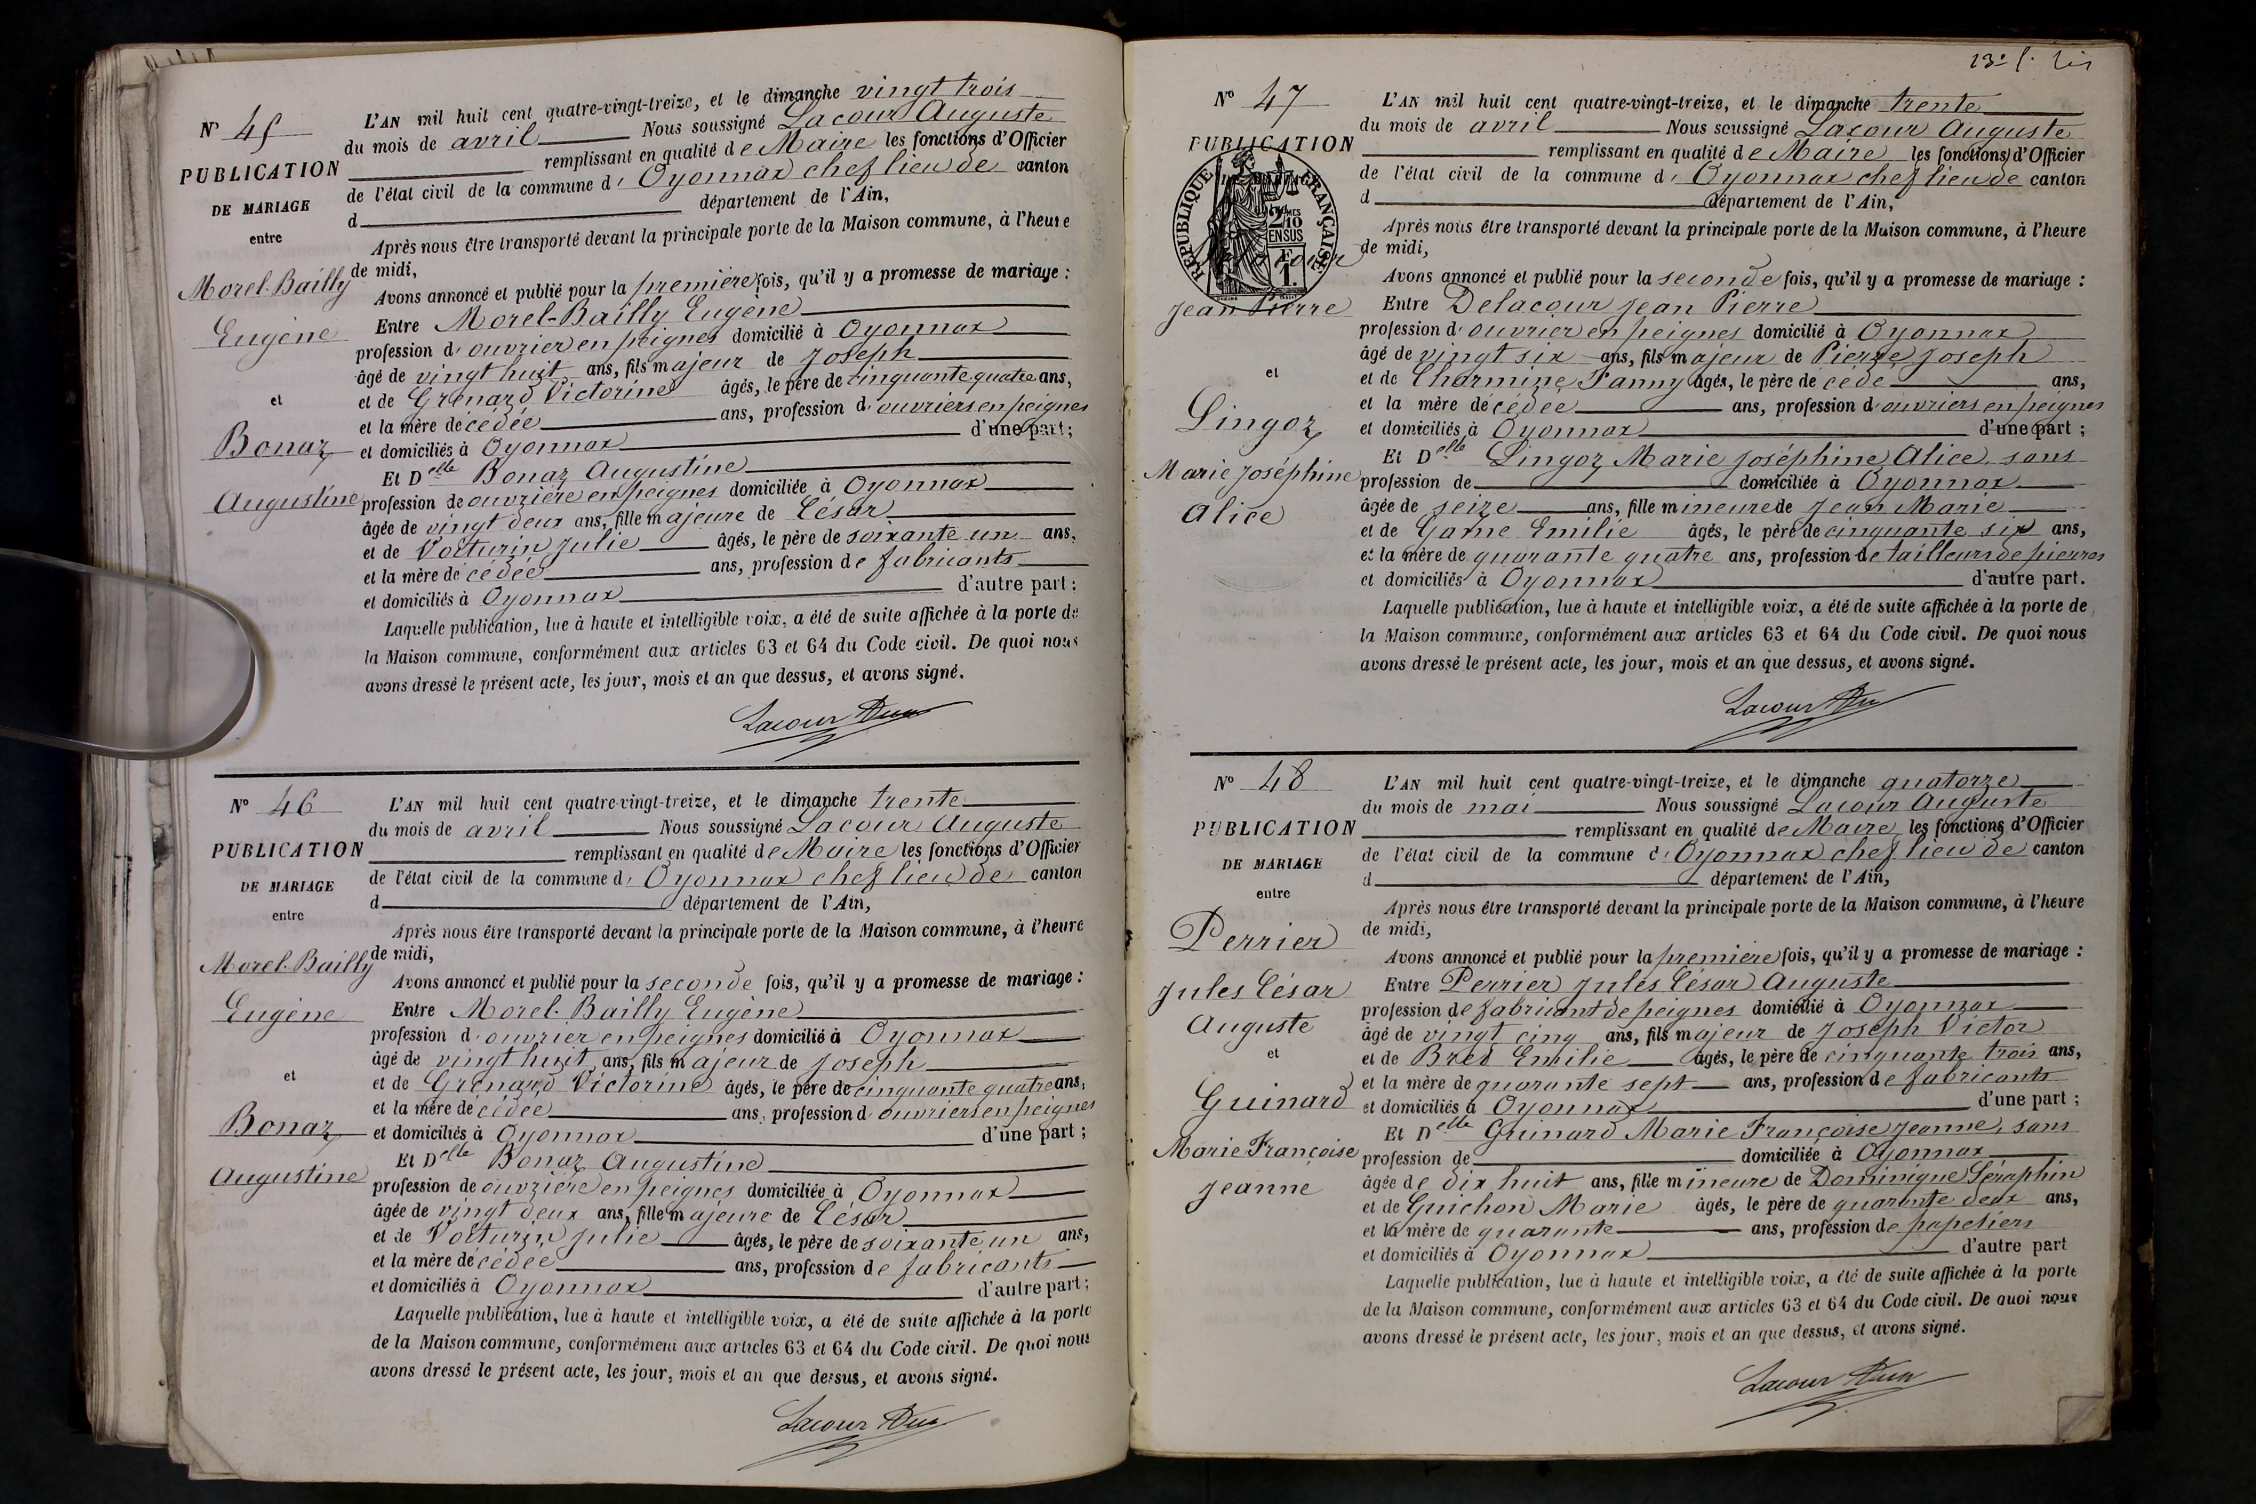 N° 45
PUBLICATION
DE MARIAGE
entre
Morel-Bailly
Eugène
et
Bonaz
Augustine
L'AN mil huit cent quatre-vingt-treize, et le dimanche vingt trois
du mois de avril Nous soussigné Lacour Auguste
remplissant en qualité de Maire les fonctions d'Officier
de l'état civil de la commune d' Oyonnax chef lieu de canton
d département de l'Ain,
Après nous être transporté devant la principale porte de la Maison commune, à l'heure
de midi,
Avons annoncé et publié pour la première fois, qu'il y a promesse de mariage :
Entre Morel-Bailly Eugène
profession d' ouvrier en peignes domicilié à Oyonnax
âgé de vingt huit ans, fils majeur de Joseph
et de Grenard Victorine âgés, le père de cinquante quatre ans,
et la mère décédée ans, profession d' ouvriers en peignes
et domiciliés à Oyonnax d'une part ;
Et Delle Bonaz Augustine
profession de ouvrière en peignes domiciliée à Oyonnax
âgée de vingt deux ans, fille majeure de César
et de Voiturin Julie âgés, le père de soixante un ans,
et la mère décédée ans, profession de fabricants
et domiciliés à Oyonnax d'autre part ;
Laquelle publication, lue à haute et intelligible voix, a été de suite affichée à la porte de
la Maison commune, conformément aux articles 63 et 64 du Code civil. De quoi nous
avons dressé le présent acte, les jour, mois et an que dessus, et avons signé.
Lacour
N° 46
PUBLICATION
DE MARIAGE
entre
Morel-Bailly
Eugène
et
Bonaz
Augustine
L'AN mil huit cent quatre-vingt-treize, et le dimanche trente
du mois de avril Nous soussigné Lacour Auguste
remplissant en qualité de Maire les fonctions d'Officier
de l'état civil de la commune d' Oyonnax chef lieu de canton
d département de l'Ain,
Après nous être transporté devant la principale porte de la Maison commune, à l'heure
de midi,
Avons annoncé et publié pour la seconde fois, qu'il y a promesse de mariage :
Entre Morel-Bailly Eugène
profession d' ouvrier en peignes domicilié à Oyonnax
âgé de vingt huit ans, fils majeur de Joseph
et de Grenard Victorine âgés, le père de cinquante quatre ans,
et la mère décédée ans, profession d' ouvriers en peignes
et domiciliés à Oyonnax d'une part ;
Et Delle Bonaz Augustine
profession de ouvrière en peignes domiciliée à Oyonnax
âgée de vingt deux ans, fille majeure de César
et de Voiturin Julie âgés, le père de soixante un ans,
et la mère décédée ans, profession de fabricants
et domiciliés à Oyonnax d'autre part ;
Laquelle publication, lue à haute et intelligible voix, a été de suite affichée à la porte
de la Maison commune, conformément aux articles 63 et 64 du Code civil. De quoi nous
avons dressé le présent acte, les jour, mois et an que dessus, et avons signé.
Lacour
N° 47
PUBLICATION
RÉPUBLIQUE FRANÇAISE
2/10 EN SUS
1 F
Jean Pierre
et
Lingoz
Marie Joséphine
Alice
L'AN mil huit cent quatre-vingt-treize, et le dimanche trente
du mois de avril Nous soussigné Lacour Auguste
remplissant en qualité de Maire les fonctions d'Officier
de l'état civil de la commune d' Oyonnax chef lieu de canton
d département de l'Ain,
Après nous être transporté devant la principale porte de la Maison commune, à l'heure
de midi,
Avons annoncé et publié pour la seconde fois, qu'il y a promesse de mariage :
Entre Delacour Jean Pierre
profession d' ouvrier en peignes domicilié à Oyonnax
âgé de vingt six ans, fils majeur de Pierre Joseph
et de Charmine Fanny âgés, le père décédé ans,
et la mère décédée ans, profession d' ouvriers en peignes
et domiciliés à Oyonnax d'une part ;
Et Delle Lingoz Marie Joséphine Alice, sans
profession de domiciliée à Oyonnax
âgée de seize ans, fille mineure de Jean Marie
et de Game Emilie âgés, le père de cinquante six ans,
et la mère de quarante quatre ans, profession de tailleurs de pierres
et domiciliés à Oyonnax d'autre part.
Laquelle publication, lue à haute et intelligible voix, a été de suite affichée à la porte de
la Maison commune, conformément aux articles 63 et 64 du Code civil. De quoi nous
avons dressé le présent acte, les jour, mois et an que dessus, et avons signé.
Lacour
N° 48
PUBLICATION
DE MARIAGE
entre
Perrier
Jules César
Auguste
et
Guinard
Marie Françoise
Jeanne
L'AN mil huit cent quatre-vingt-treize, et le dimanche quatorze
du mois de mai Nous soussigné Lacour Auguste
remplissant en qualité de Maire les fonctions d'Officier
de l'état civil de la commune d' Oyonnax chef lieu de canton
d département de l'Ain,
Après nous être transporté devant la principale porte de la Maison commune, à l'heure
de midi,
Avons annoncé et publié pour la première fois, qu'il y a promesse de mariage :
Entre Perrier Jules César Auguste
profession de fabricant de peignes domicilié à Oyonnax
âgé de vingt cinq ans, fils majeur de Joseph Victor
et de Bred Emilie âgés, le père de cinquante trois ans,
et la mère de quarante sept ans, profession de fabricants
et domiciliés à Oyonnax d'une part ;
Et Delle Guinard Marie Françoise Jeanne, sans
profession de domiciliée à Oyonnax
âgée de dix huit ans, fille mineure de Dominique Séraphin
et de Guichon Marie âgés, le père de quarante deux ans,
et la mère de quarante ans, profession de papetiers
et domiciliés à Oyonnax d'autre part
Laquelle publication, lue à haute et intelligible voix, a été de suite affichée à la porte
de la Maison commune, conformément aux articles 63 et 64 du Code civil. De quoi nous
avons dressé le présent acte, les jour, mois et an que dessus, et avons signé.
Lacour